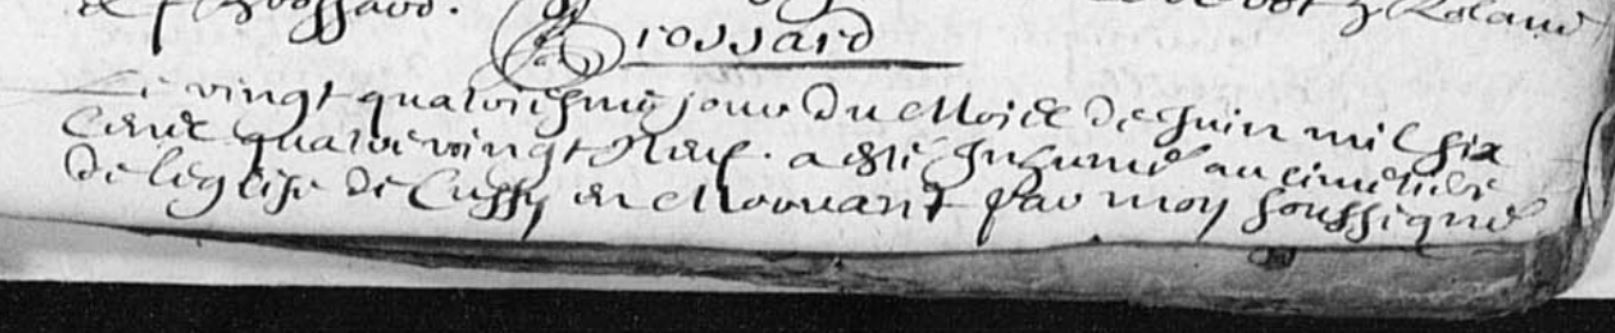 Brossard
Le vingt quatriesme jour du Moise de Juin mil six
Cent quatrevingt Neuf. a esté Inhumé au cimetiere
de leglise de Cussy en Morvant par moy soussigné